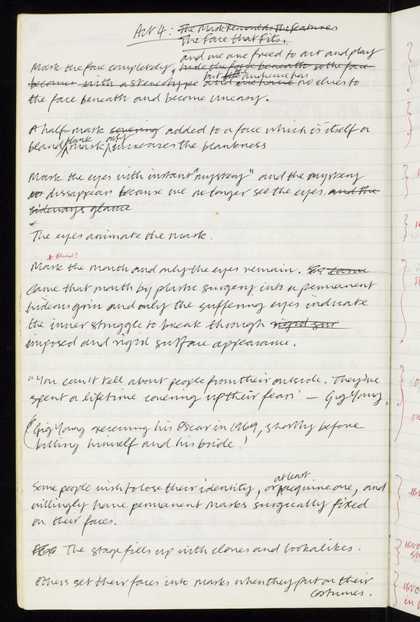 Act 4: The Mask Beneath the Features
The Face that Fits.
and we are freed to act and play
Mask the face completely, hide the face beneath or the face
but the audience has
becomes with a stereotype and no clues to
the face beneath and become uneasy.
A half mask covering added to a face which is itself a
bland blank mask, only increases the blankness
Mask the eyes with instant "mystery" and the mystery
dissappears because we no longer see the eyes. and the
sideways glance
The eyes animate the mask.
Mask the mouth and only the eyes remain.
came that mouth by plastic surgery into a permanent
hideous grin and only the suffering eyes indicate
the inner struggle to break through rigid sur
imposed and rigid surface appearance.
"You can't tell about people from their outside. They've
spent a lifetime covering up their fears" — Gig Young.
(Gig Young receiving his Oscar in 1969, shortly before
killing himself and his bride!
at least
Some people wish to lose their identity, or acquire one, and
willingly have permanent masks surgically fixed
on their faces.
The stage fills up with clones and lookalikes.
Others set their faces into masks when they put on their
costumes.